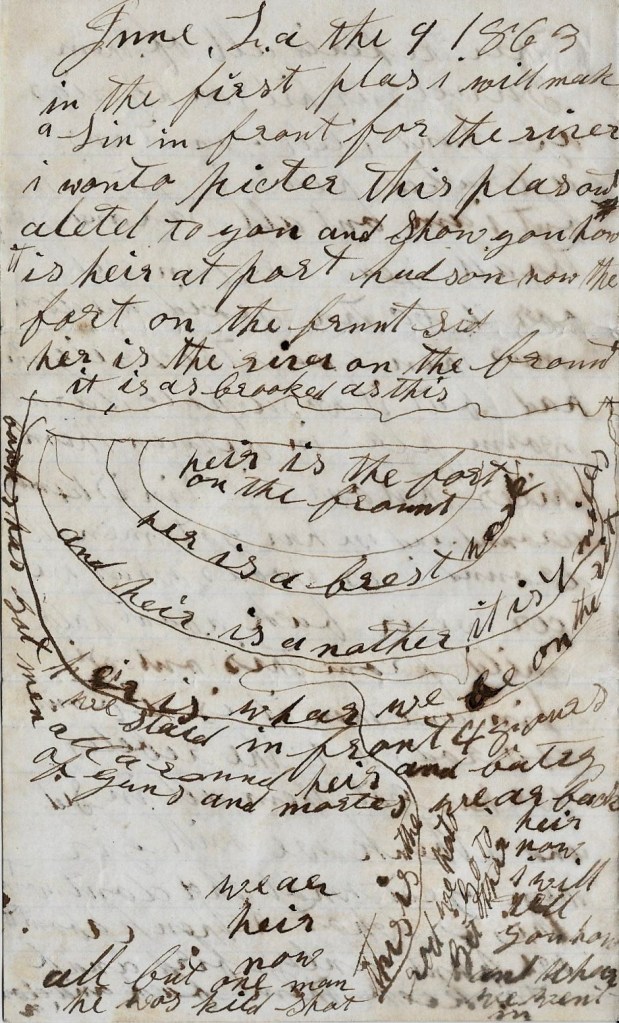 June, La the 9 1863
in the first plas i will mak
a Lin in front for the river
i wonto picter this plas out
aletel to you and Show you how
it is heir at port hudson now the
fort on the frunt sid
her is the river on the frount
it is as brooked as this
heir is the fort
on the frount
her is a brest work
and heir is a nother it is 7 miles
heir is whar we be on the sid
bankes has got men
we staid in front 4 days
all a round heir and baters
of guns and morters we ar back
heir
now
i will
tell
you how
and whar
we went
in
this is the
rod we hav
to
get thar
we ar
heir
now
all but one man
he was kild shot